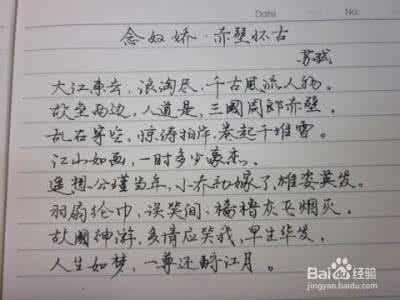 Date No.
念奴娇·赤壁怀古
苏轼
大江东去，浪淘尽，千古风流人物。
故垒西边，人道是，三國周郎赤壁。
乱石穿空，惊涛拍岸，卷起千堆雪。
江山如画，一时多少豪杰。
遥想公瑾当年，小乔初嫁了，雄姿英发。
羽扇纶巾，谈笑间，樯橹灰飞烟灭。
故國神游，多情应笑我，早生华发。
人生如梦，一尊还酹江月。
Baidu 经验
jingyan.baidu.com